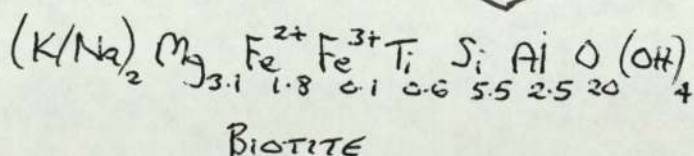 (K/Na)₂ Mg₃.₁ Fe²⁺₁.₈ Fe³⁺₀.₁ Ti₀.₆ Si₅.₅ Al₂.₅ O₂₀ (OH)₄
BIOTITE